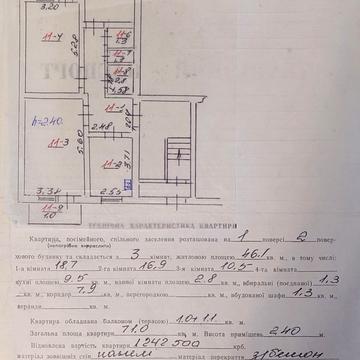 3.20
11-4
5.28
11-6
1.3
11-7
1.3
11-8
2.8
1.58
11-1
h=2.40
11-3
5.60
2.48
11-2
3.71
3.34
2.55
11-9
1.0
ТЕХНІЧНА ХАРАКТЕРИСТИКА КВАРТИРИ
Квартира, посімейного, спільного заселення розташована на 1 поверсі 2 повер-
(непотрібне викреслити)
хового будинку та складається з 3 кімнат, житловою площею 46.1 кв. м, в тому числі:
1-а кімната 18.7 2-а кімната 16.9 3-я кімната 10.5 4-та кімната
кухні площею 9.5 кв. м, ванної кімнати площею 2.8 кв. м, вбиральні (поєднаної) 1.3
кв. м, коридор 7.9 кв. м, перегородкою кв. м, вбудованої шафи 1.3 кв. м,
веранди кв. м.
Квартира обладнана балконом (терасою) 1.0+1.1 кв. м.
Загальна площа квартири 71.0 кв. м. Висота приміщень 2.40 м.
Відновлена вартість квартири 1242500 крб.
матеріал зовнішніх стін панелі матеріал перекриття з/бетон